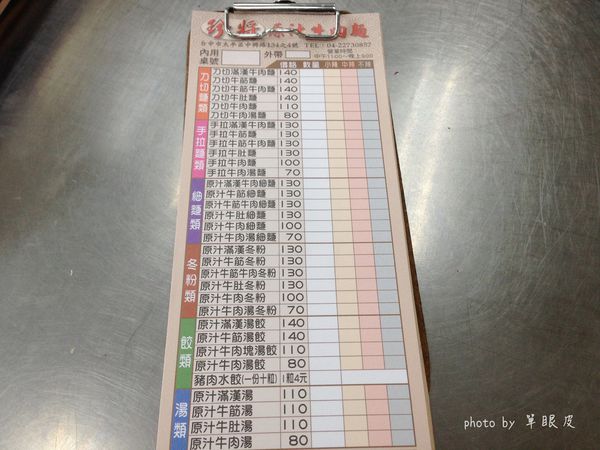 珍將原汁牛肉麵
台中市太平區中興路134之4號 TEL:04-22730857
內用 桌號 外帶 營業時間 中午11:00~晚上9:00
價格 數量 小辣 中辣 不辣
刀切麵類
刀切滿漢牛肉麵 140
刀切牛筋麵 140
刀切牛筋牛肉麵 140
刀切牛肚麵 140
刀切牛肉麵 110
刀切牛肉湯麵 80
手拉麵類
手拉滿漢牛肉麵 130
手拉牛筋麵 130
手拉牛筋牛肉麵 130
手拉牛肚麵 130
手拉牛肉麵 100
手拉牛肉湯麵 70
細麵類
原汁滿漢牛肉細麵 130
原汁牛筋細麵 130
原汁牛筋牛肉細麵 130
原汁牛肚細麵 130
原汁牛肉細麵 100
原汁牛肉湯細麵 70
冬粉類
原汁滿漢冬粉 130
原汁牛筋冬粉 130
原汁牛筋牛肉冬粉 130
原汁牛肚冬粉 130
原汁牛肉冬粉 100
原汁牛肉湯冬粉 70
餃類
原汁滿漢湯餃 140
原汁牛筋湯餃 140
原汁牛肉塊湯餃 110
原汁牛肉湯餃 80
豬肉水餃(一份十粒) 1粒4元
湯類
原汁滿漢湯 110
原汁牛筋湯 110
原汁牛肚湯 110
原汁牛肉湯 80
photo by 單眼皮